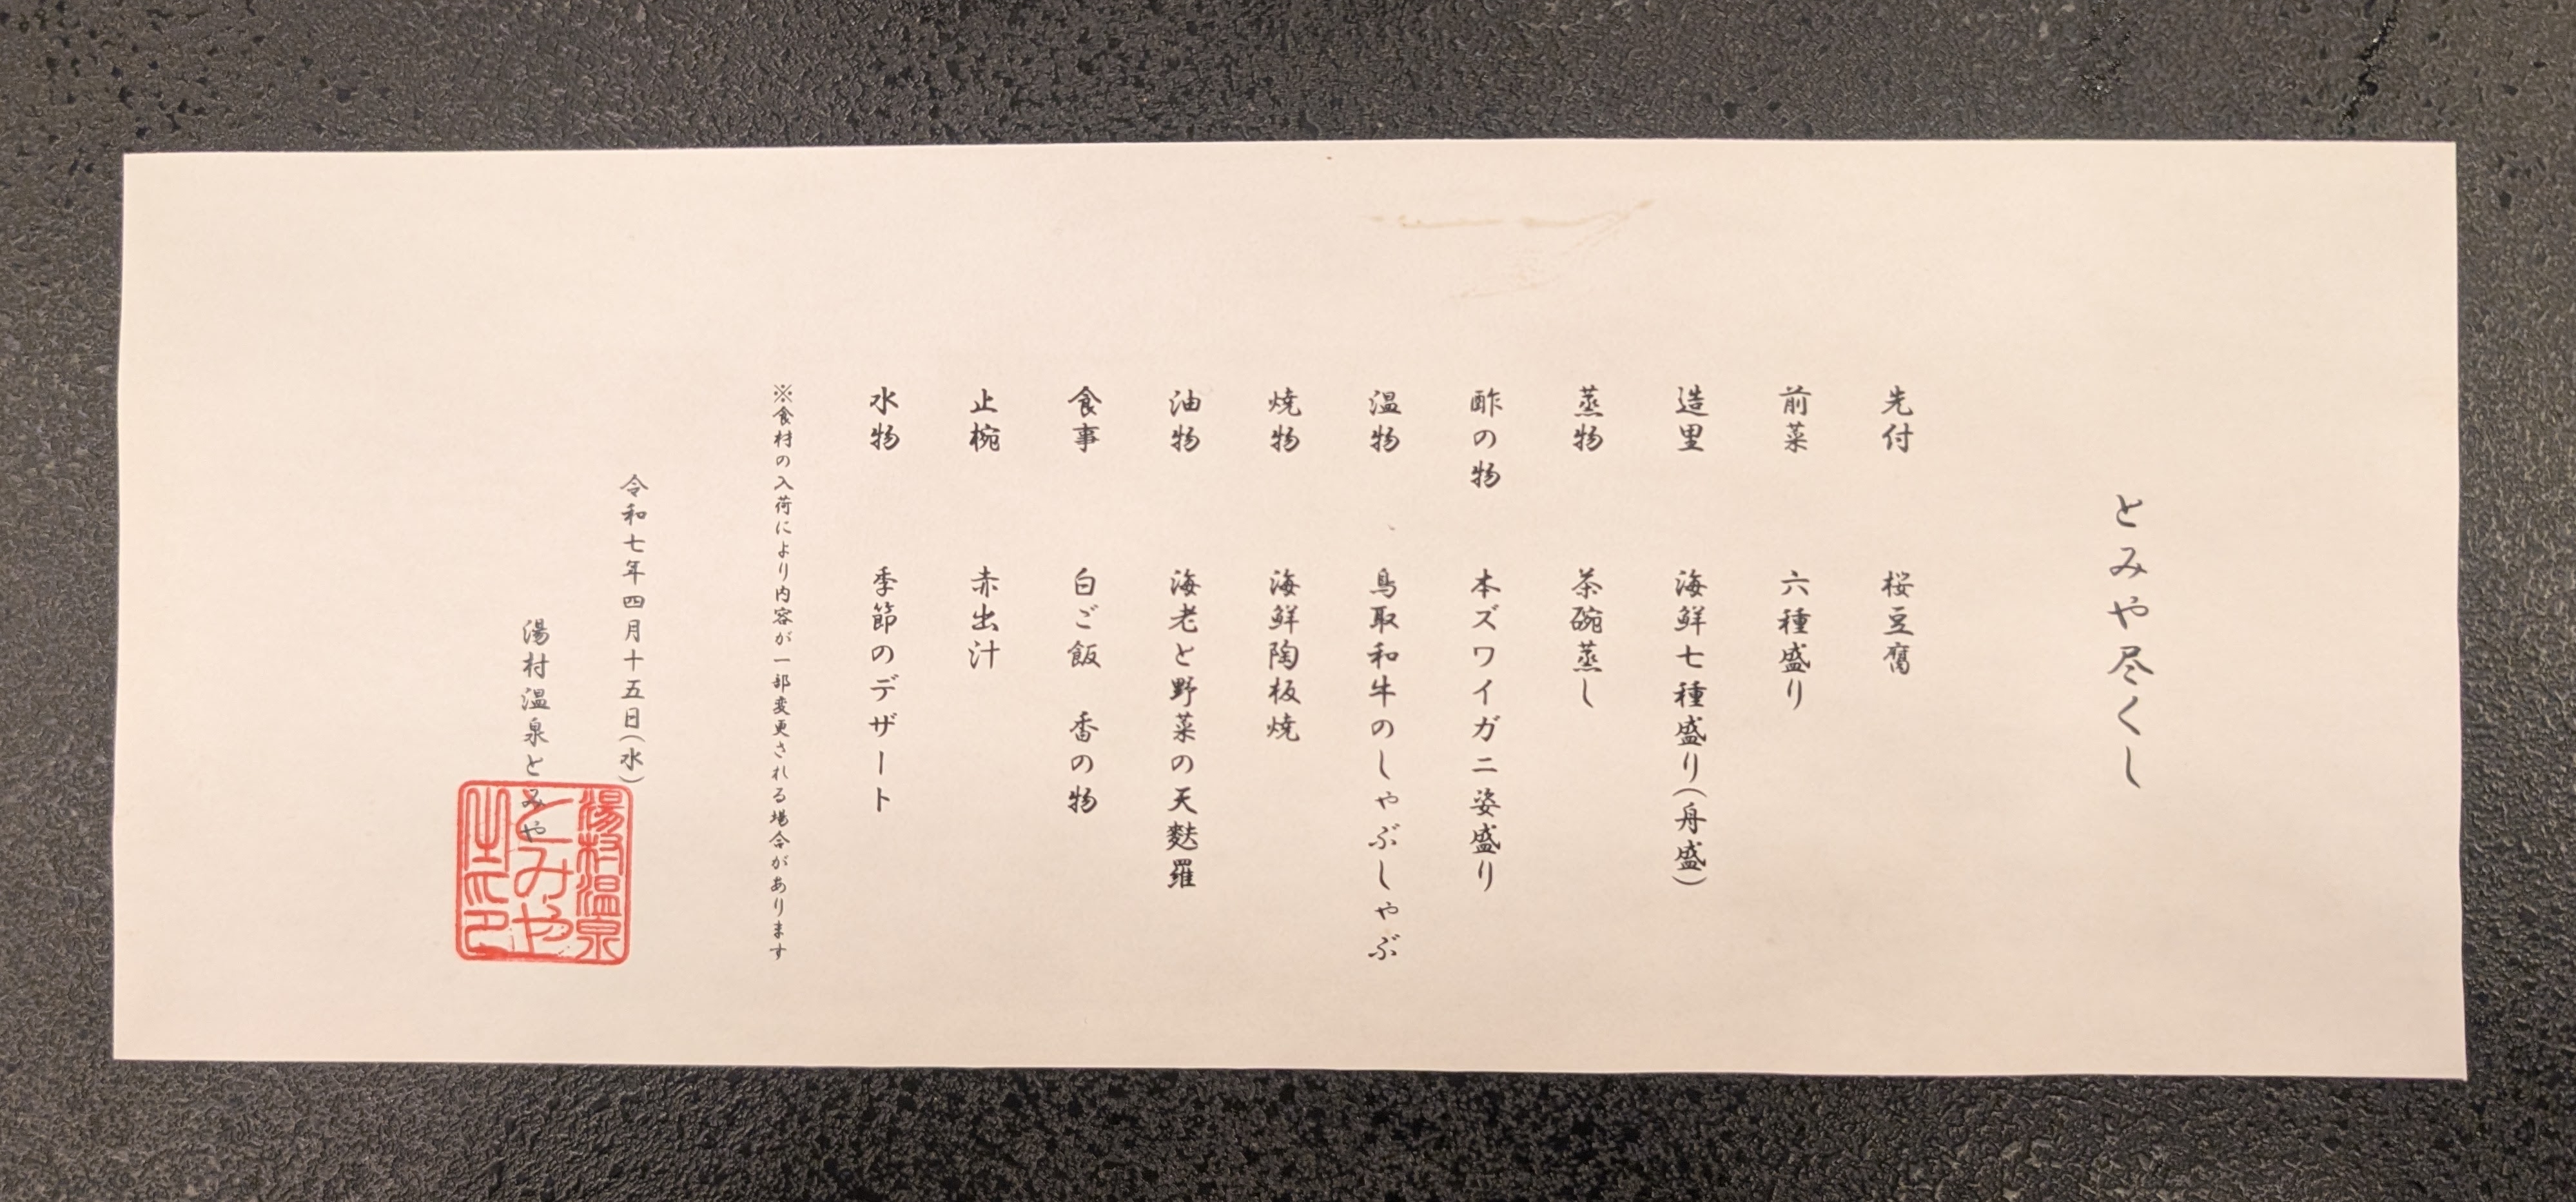 とみや尽くし
先付 桜豆腐
前菜 六種盛り
造里 海鮮七種盛り(舟盛)
蒸物 茶碗蒸し
酢の物 本ズワイガニ姿盛り
温物 鳥取和牛のしゃぶしゃぶ
焼物 海鮮陶板焼
油物 海老と野菜の天麩羅
食事 白ご飯 香の物
止椀 赤出汁
水物 季節のデザート
※食材の入荷により内容が一部変更される場合があります
令和七年四月十五日(水)
湯村温泉とみや
湯村温泉
とみや
之印